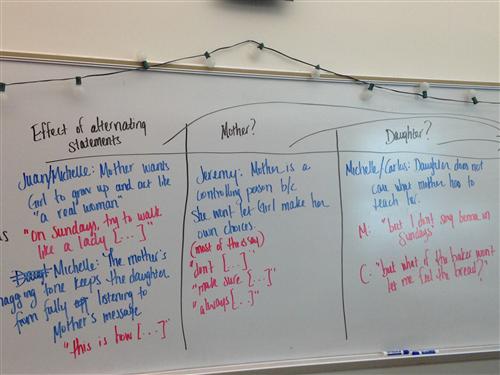 Effect of alternating
statements
Juan/Michelle: Mother wants
Girl to grow up and act like
"a real woman"
"on Sundays, try to walk
like a lady [...]"
Michelle: The mother's
nagging tone keeps the daughter
from fully listening to
Mother's message
"this is how [...]"
Mother?
Jeremy: Mother is a
controlling person b/c
She won't let Girl make her
own choices
(most of the essay)
"don't [...]"
"make sure [...]"
"always [...]"
Daughter?
Michelle/Carlos: Daughter does not
care what mother has to
teach her.
M: "but I don't sing benna on
Sundays"
C: "but what if the baker won't
let me feel the bread?"